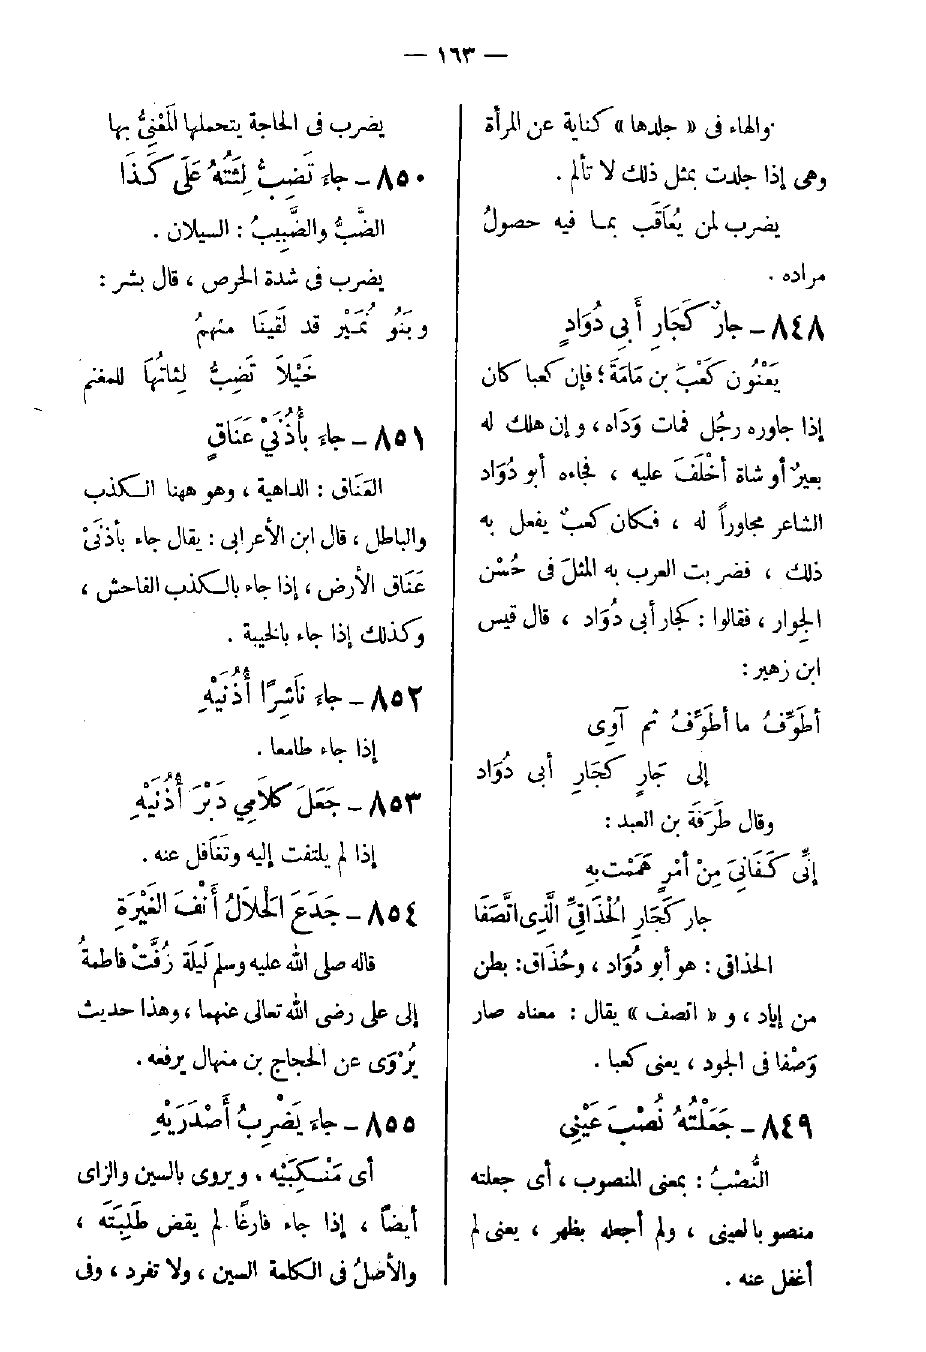 — ١٦٣ —
والهاء فى « جلدها » كناية عن المرأة
وهى إذا جلدت بمثل ذلك لا تألم .
يضرب لمن يُعَاقَب بما فيه حصولُ
مراده .
٨٤٨ – جارٌ كَجَارِ أَبِى دُوَادٍ
يَعْنُون كَعْبَ بن مَامَةَ ؛ فإن كعبا كان
إذا جاوره رجُل فمات وَدَاه ، وإن هلك له
بعيرٌ أو شاة أخْلَفَ عليه ، فجاءه أبو دُوَاد
الشاعر مجاوراً له ، فكان كعبٌ يفعل به
ذلك ، فضربت العرب به المثلَ فى حُسْن
الجِوار ، فقالوا : كجار أبى دُوَاد ، قال قيس
ابن زهير :
أطَوِّفُ ما أطَوِّفُ ثم آوِى
إلى جَارٍ كجَارِ أبى دُوَاد
وقال طَرَفَة بن العبد :
إنِّى كَفَانِىَ مِنْ أمْرٍ هَمَمْت بِهِ
جار كَجَارِ الْحُذَاقِىِّ الَّذِى اتَّصَفَا
الحذاقى : هو أبو دُوَاد ، وحُذَاق : بطن
من إياد ، و « اتصف » يقال : معناه صار
وَصْفا فى الجود ، يعنى كعبا .
٨٤٩ – جَعَلْتُهُ نُصْبَ عَيْنِى
النُّصْبُ : بمعنى المنصوب ، أى جعلته
منصوبا لعينى ، ولم أجعله بظهر ، يعنى لم
أغفل عنه .
يضرب فى الحاجة يتحملها المَعْنِىُّ بها
٨٥٠ – جاء تَضِبُّ لِثَتُهُ عَلَى كَذَا
الضَّبُّ والضَّبِيبُ : السيلان .
يضرب فى شدة الحرص ، قال بشر :
وبَنُو نُمَيْر قد لَقِينَا منهمُ
خَيْلاً تَضِبُّ لِثاتُهَا للمغنم
٨٥١ – جاء بأُذُنَىْ عَنَاقٍ
العَنَاق : الداهية ، وهو ههنا الكذب
والباطل ، قال ابن الأعرابى : يقال جاء بأذنَىْ
عَنَاق الأرض ، إذا جاء بالكذب الفاحش ،
وكذلك إذا جاء بالخيبة .
٨٥٢ – جاء نَاشِرًا أُذُنَيْهِ
إذا جاء طامعا .
٨٥٣ – جَعَلَ كَلاَمِي دَبْرَ أُذُنَيْهِ
إذا لم يلتفت إليه وتغَافل عنه .
٨٥٤ – جَدَعَ الحَلاَلُ أَنْفَ الغَيْرَةِ
قاله صلى الله عليه وسلم لَيلَة زُفَّتْ فاطمةُ
إلى على رضى الله تعالى عنهما ، وهذا حديث
يُرْوَى عن الحجاج بن منهال يرفعه .
٨٥٥ – جاء يَضْرِبُ أَصْدَرَيْهِ
أى مَنْكِبَيْه . ويروى بالسين والزاى
أيضاً ، إذا جاء فارغًا لم يقض طَلِبَتَه ،
والأصلُ فى الكلمة السين ، ولا تفرد ، وفى